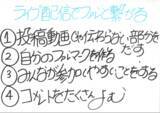 ライブ配信でファンと繋がる
①投稿動画じゃ伝わらない部分をだす
②自分のファンマークを作る
③みんなが参加しやすいことをする
④コメントをたくさんよむ